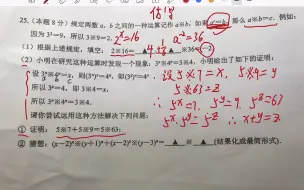 错得
2^x=16 a^2=36
25.(本题8分) 规定两数 a, b 之间的一种运算记作 a※b: 如果 a^c=b, 那么 a※b=c. 例如:
因为 3²=9, 所以 3※9=2.
(1) 根据上述规定, 填空: 2※16= ▲ 4, ▲ ※36=2
(2) 小明在研究这种运算时发现一个现象: 3ⁿ※4ⁿ=3※4, 小明给出了如下的证明:
设 3ⁿ※4ⁿ=x, 则(3ⁿ)^x=4ⁿ, 即(3^x)ⁿ=4ⁿ.
所以 3^x=4, 即 3※4=x,
所以 3ⁿ※4ⁿ=3※4.
∴ 设5※7=x, 5※9=y
5※63=z
∴ 5^x=7, 5^y=9, 5^z=63
5^x·5^y=5^z ∴ x+y=z
请你尝试运用这种方法解决下列问题:
① 证明: 5※7+5※9=5※63;
② 猜想: (x−2)ⁿ※(y+1)ⁿ+(x−2)ⁿ※(y−3)ⁿ= ▲ ※ ▲ (结果化成最简形式).